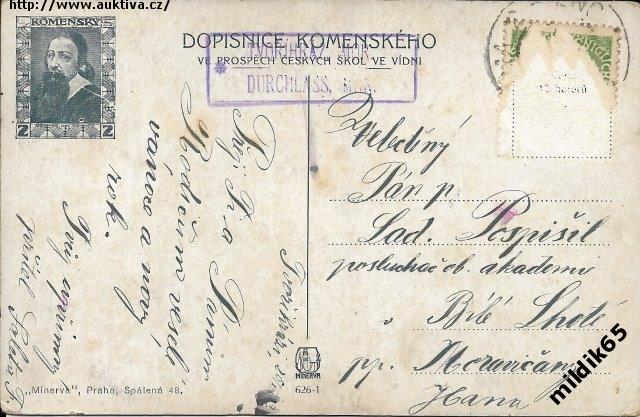 http://www.auktiva.cz/
KOMENSKÝ
2 2
DOPISNICE KOMENSKÉHO
VE PROSPĚCH ČESKÝCH ŠKOL VE VÍDNI
TVOŘIHRÁZ, MOR.
DURCHLASS, MÄH.
Přej Ti a Tvým
Rodičům veselé
vánoce a nový
rok.
Tvůj upřímný
přítel
Velectěný
Pán p.
Lad. Pospíšil
posluchač ob. akademie
v Bílé Lhotě
pp. Moravičany
Hana
„Minerva", Praha, Spálená 48.
MINERVA
626-1
mildik65